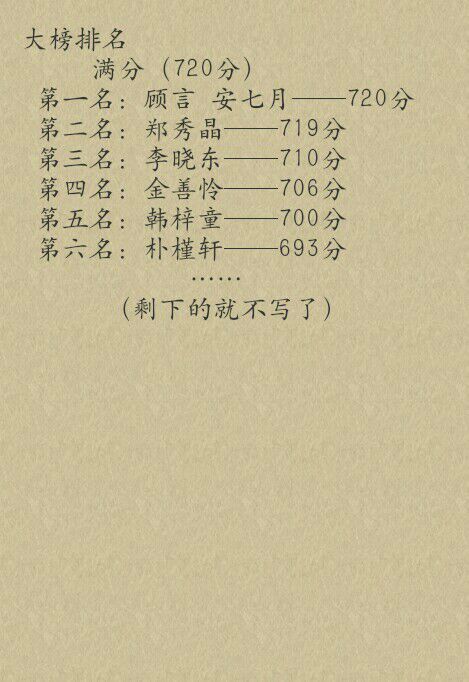 大榜排名
满分（720分）
第一名：顾言 安七月——720分
第二名：郑秀晶——719分
第三名：李晓东——710分
第四名：金善怜——706分
第五名：韩梓童——700分
第六名：朴槿轩——693分
……
（剩下的就不写了）